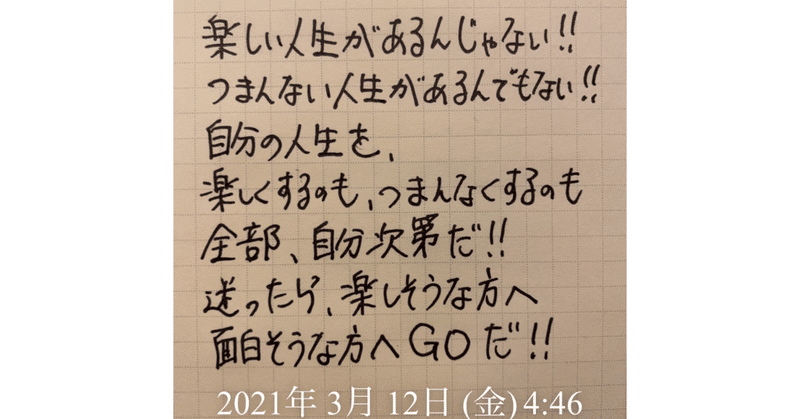 楽しい人生があるんじゃない!!
つまんない人生があるんでもない!!
自分の人生を、
楽しくするのも、つまんなくするのも
全部、自分次第だ!!
迷ったら、楽しそうな方へ
面白そうな方へGOだ!!
2021年 3月 12日 (金) 4:46